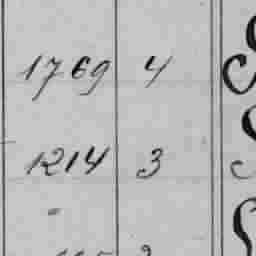 1769 4
1214 3
"